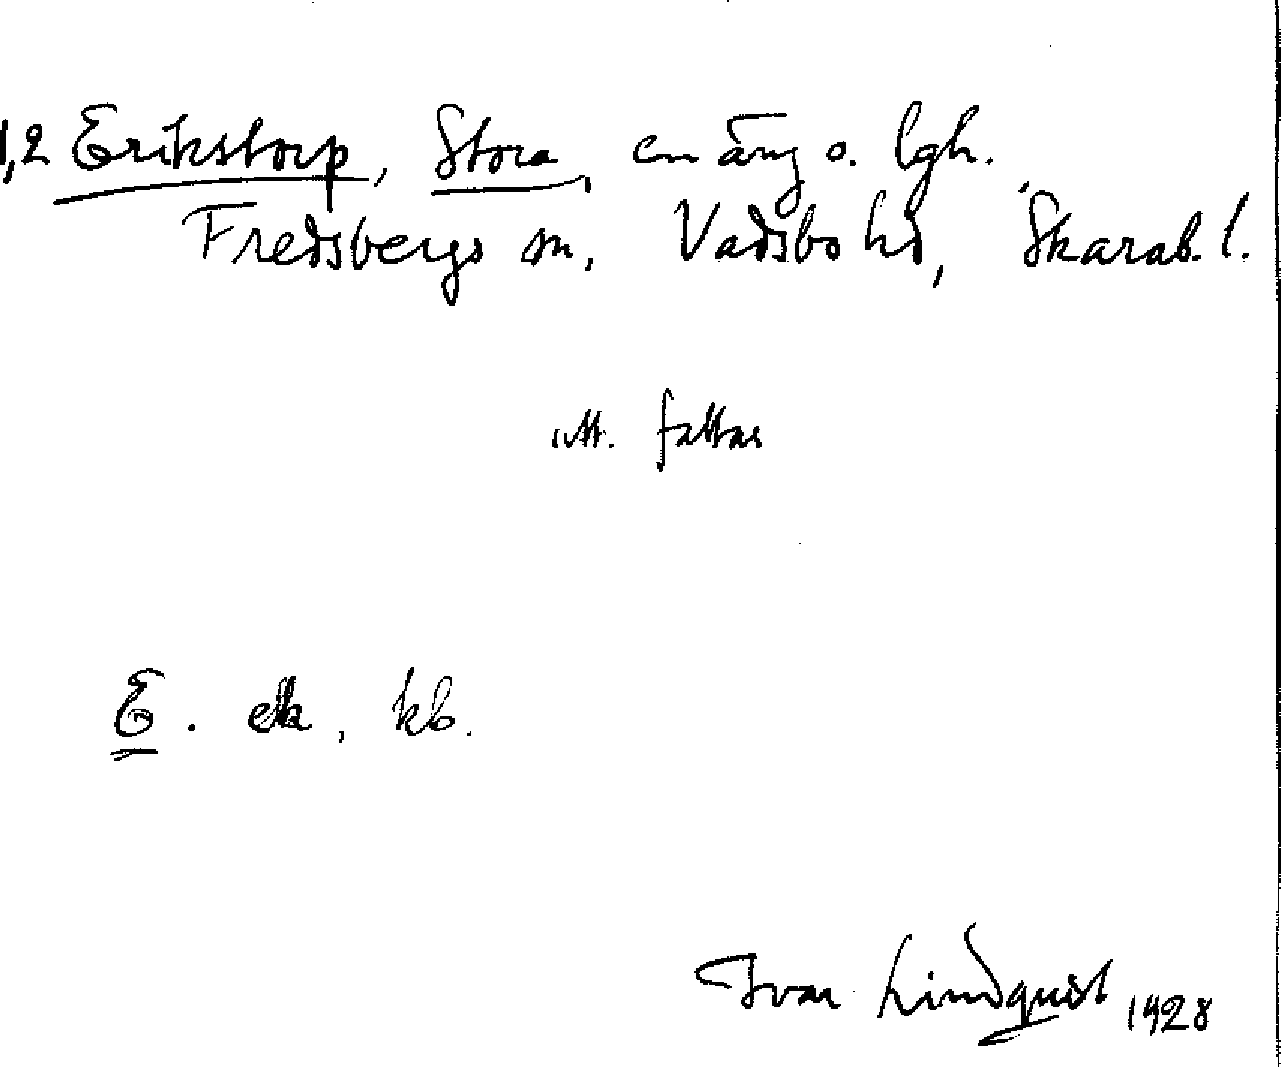 1,2 Erikstorp, Stora, en äng o. lgh.
Fredsbergs sn, Vadsbo hd, Skarab. l.
utt. fattas
E. ek, kb.
Ivar Lindquist 1928